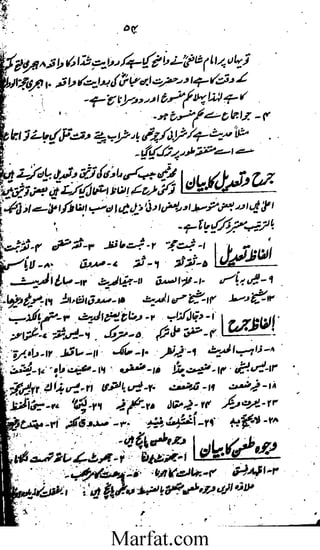 ۵۴
تو یہاں پر امام شافعی نے واضح کیا ہے کہ روایت شداد کا واقعہ ۸ ہجری فتح مکہ
کے وقت کا ہے اور حضرت ابن عباس کی روایت کا واقعہ ۱۰ ہجری حجۃ الوداع
کا ہے لہٰذا پہلا حکم منسوخ اور دوسرا ناسخ ہے۔
۴۔ جو اجماع سے حکم منسوخ ہو۔
مثلاً حدیث ہے کہ شرابی کو چوتھی بار شراب پیتے وقت قتل کیا جائے تو اجماع
سے اسے متفقہ طور پر ترک کیا گیا۔
جرح و تعدیل کا بیان
محدثین جب کسی راوی کی توثیق و تعدیل بیان کرتے ہیں
تو کئی طرح کے الفاظ استعمال کرتے ہیں بعض توثیق میں
اعلیٰ ہیں اور بعض متوسط اور بعض ادنیٰ ذیل میں ان سب الفاظ کو اعلیٰ سے ادنیٰ تک
بالترتیب ذکر کیا جاتا ہے۔
الفاظ تعدیل
۱۔ ثبت حجۃ ۲۔ ثبت حافظ ۳۔ ثقہ متقن ۴۔ ثقہ ثبت
۵۔ ثقہ ثقہ ۶۔ ثقہ ۷۔ صدوق ۸۔ لا باس بہ
۹۔ لیس بہ باس ۱۰۔ محلہ الصدق ۱۱۔ جید الحدیث ۱۲۔ صالح الحدیث
۱۳۔ شیخ وسط ۱۴۔ شیخ حسن الحدیث ۱۵۔ صدوق انشاءاللہ ۱۶۔ صویلح وغیرہا
الفاظ جرح
۱۔ دجال کذاب ۲۔ وضاع یضع الحدیث ۳۔ متہم بالکذب
۴۔ متفق علی ترکہ ۵۔ متروک ۶۔ لیس بثقۃ ۷۔ سکتوا عنہ
۸۔ ذاہب الحدیث ۹۔ فیہ نظر ۱۰۔ ہالک ۱۱۔ ساقط ۱۲۔ واہ بمرۃ
۱۳۔ لیس بشئی ۱۴۔ ضعیف جدًا ۱۵۔ ضعفوہ ۱۶۔ ضعیف واہ ۱۷۔ یضعف
۱۸۔ فیہ ضعف ۱۹۔ قد ضعف ۲۰۔ لیس بالقوی ۲۱۔ لیس بذاک ۲۲۔ لیس بحجۃ
۲۳۔ یعرف وینکر ۲۴۔ فیہ مقال ۲۵۔ تکلم فیہ ۲۶۔ لین ۲۷۔ سیئ الحفظ
۲۸۔ لا یحتج بہ ۲۹۔ اختلف فیہ ۳۰۔ صدوق لکنہ ۳۱۔ مبتدع وغیرہا
وجوہ طعن کا بیان
وجوہ طعن پانچ ہیں۔
۱۔ جھوٹ بولنا ۲۔ جھوٹ کے ساتھ تہمت لگانا
۳۔ اظہار فسق ۴۔ جہالت کا ہونا۔ ۵۔ بدعت کا مرتکب۔
علاوہ ازیں وجوہ طعن متعلق بالضبط وہ بھی پانچ ہیں:
Marfat.com